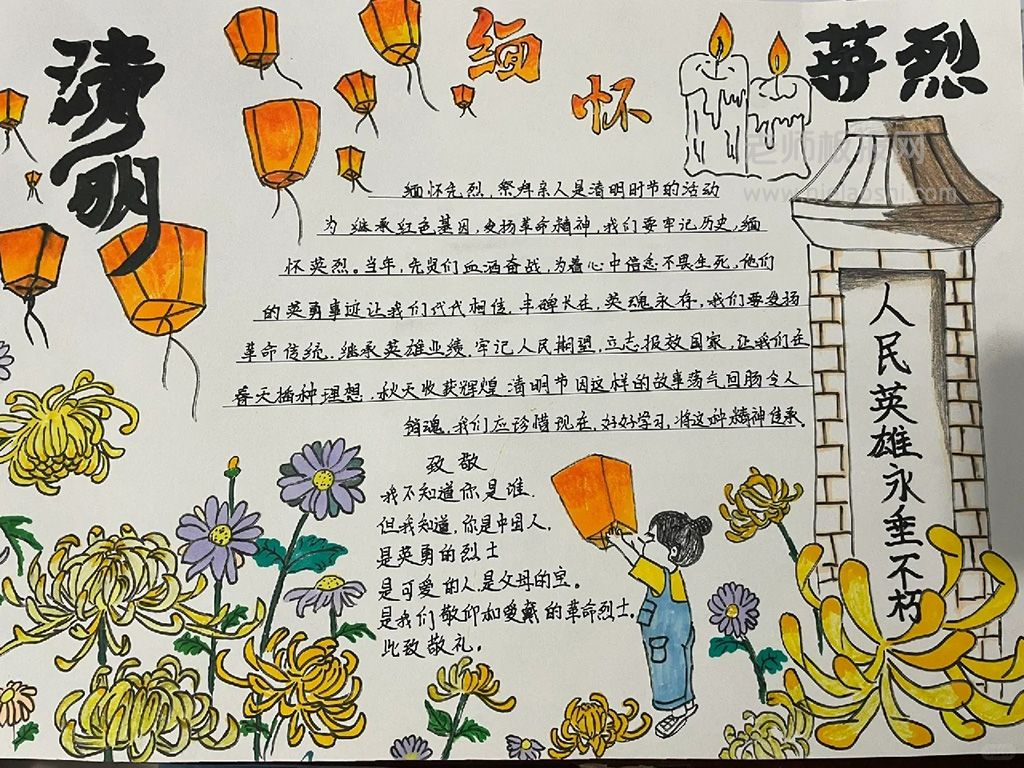 清明
缅怀
英烈
老师板报网
缅怀先烈,祭拜亲人是清明时节的活动
为继承红色基因,发扬革命精神,我们要牢记历史,缅
怀英烈。当年,先贤们血洒奋战,为着心中信念不畏生死,他们
的英勇事迹让我们代代相传.丰碑长在,英魂永存,我们要发扬
革命传统,继承英雄业绩,牢记人民期望,立志报效国家,让我们在
春天播种理想,秋天收获辉煌.清明节因这样的故事荡气回肠令人
销魂,我们应珍惜现在,好好学习,将这种精神传承.
致敬
我不知道你是谁.
但我知道,你是中国人,
是英勇的烈士
是可爱的人,是父母的宝。
是我们敬仰和爱戴的革命烈士.
此致敬礼。
人民英雄永垂不朽